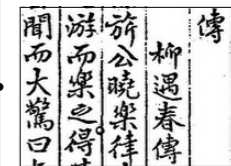 傳
柳遇春傳
旂公曉樂律
游而樂之得
聞而大驚曰